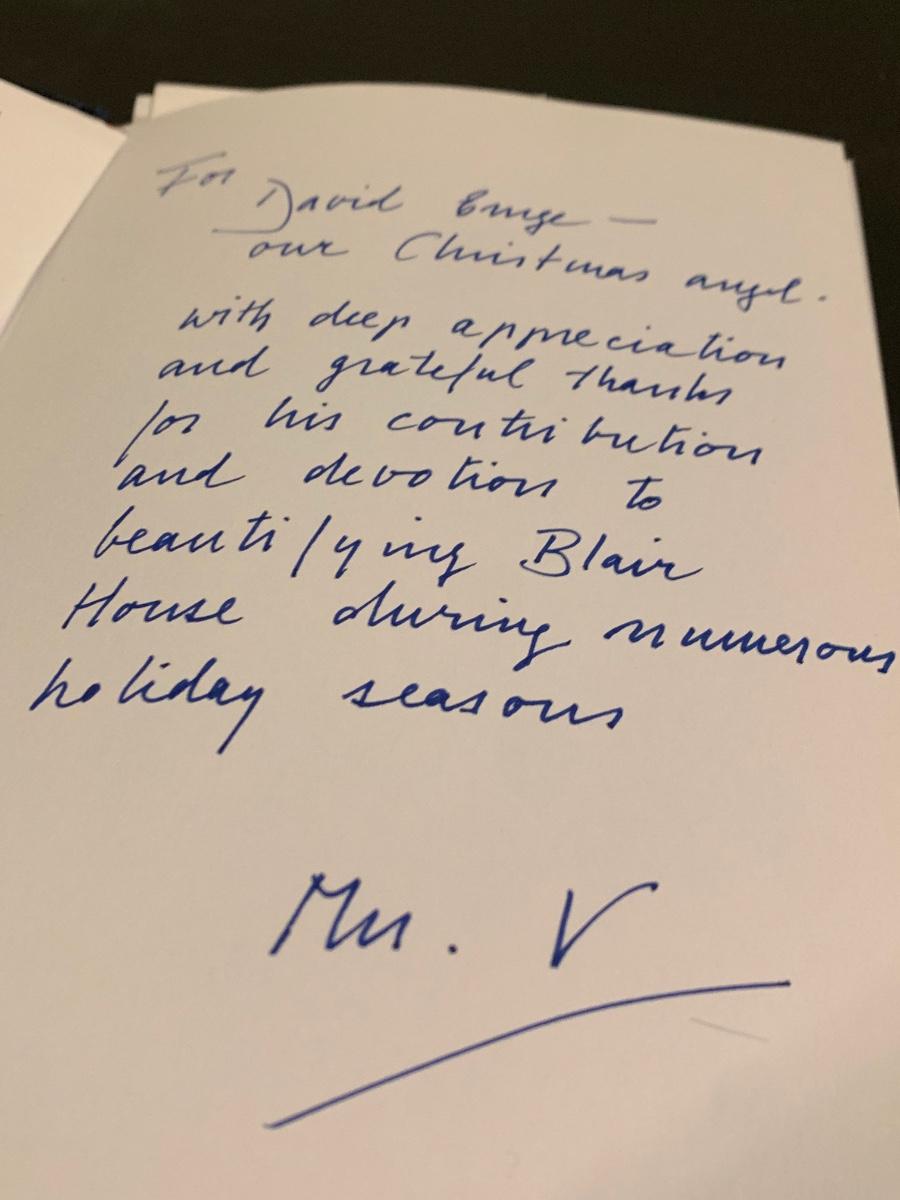 For
David Burge —
our Christmas angel.
with deep appreciation
and grateful thanks
for his contribution
and devotion to
beautifying Blair
House during numerous
holiday seasons
Mrs. V